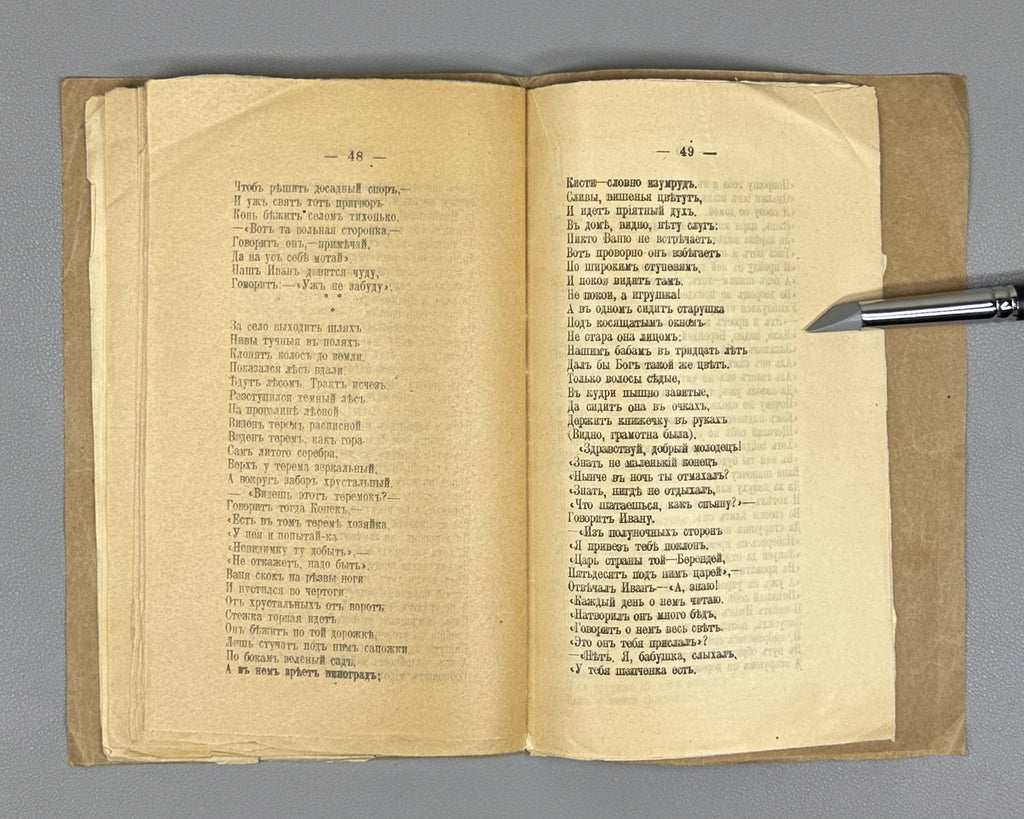 — 48 —
Чтобъ рѣшить досадный споръ,—
И ужъ святъ тотъ приговоръ
Конь бѣжитъ селомъ тихонько.
—«Вотъ та вольная сторонка,—
Говоритъ онъ,—примѣчай,
Да на усъ себѣ мотай»
Нашъ Иванъ дивится чуду,
Говоритъ:—«Ужъ не забуду».
* *
*
За село выходитъ шляхъ
Нивы тучныя въ поляхъ
Клонятъ колосъ до земли.
Показался лѣсъ вдали.
Ѣдутъ лѣсомъ. Трактъ исчезъ.
Разступился темный лѣсъ.
На прогалинѣ лѣсной
Виденъ теремъ расписной.
Виденъ теремъ, какъ гора
Самъ литого серебра,
Верхъ у терема зеркальный,
А вокругъ заборъ хрустальный.
— «Видешь этотъ теремокъ?—
Говоритъ тогда Конекъ,—
«Есть въ томъ теремѣ хозяйка.
«У нея и попытай-ка
«Невидимку ту добыть».—
«Не откажетъ, надо быть».
Ваня скокъ на рѣзвы ноги
И пустился во чертоги.
Отъ хрустальныхъ отъ воротъ
Стежка торная идетъ.
Онъ бѣжитъ по той дорожкѣ,
Лишь стучатъ подъ нимъ сапожки
По бокамъ зеленый садъ,
А въ немъ зрѣетъ виноградъ;
— 49 —
Кисти—словно изумрудъ.
Сливы, вишенья цвѣтутъ,
И идетъ пріятный духъ.
Въ домѣ, видно, нѣту слугъ:
Никто Ваню не встрѣчаетъ;
Вотъ проворно онъ взбѣгаетъ
По широкимъ ступенямъ,
И покои видитъ тамъ.
Не покои, а игрушка!
А въ одномъ сидитъ старушка
Подъ косящатымъ окномъ
Не стара она лицомъ:
Нашимъ бабамъ въ тридцать лѣтъ
Далъ бы Богъ такой же цвѣтъ.
Только волосы сѣдые,
Въ кудри пышно завитые,
Да сидитъ она въ очкахъ,
Держитъ книжечку въ рукахъ
(Видно, грамотна была).
«Здравствуй, добрый молодецъ!
«Знать не маленькій конецъ
«Нынче въ ночь ты отмахалъ?
«Знать, нигдѣ не отдыхалъ,
«Что шатаешься, какъ спьяну?»—
Говоритъ Ивану.
—«Изъ полуночныхъ сторонъ
«Я привезъ тебѣ поклонъ.
«Царь страны той—Берендей,
Пятьдесятъ подъ нимъ царей»,—
Отвѣчалъ Иванъ—«А, знаю!
«Каждый день о немъ читаю.
«Натворилъ онъ много бѣдъ,
«Говорятъ о немъ весь свѣтъ.
«Это онъ тебя прислалъ»?
—«Нѣтъ. Я, бабушка, слыхалъ,
«У тебя шапченка есть.